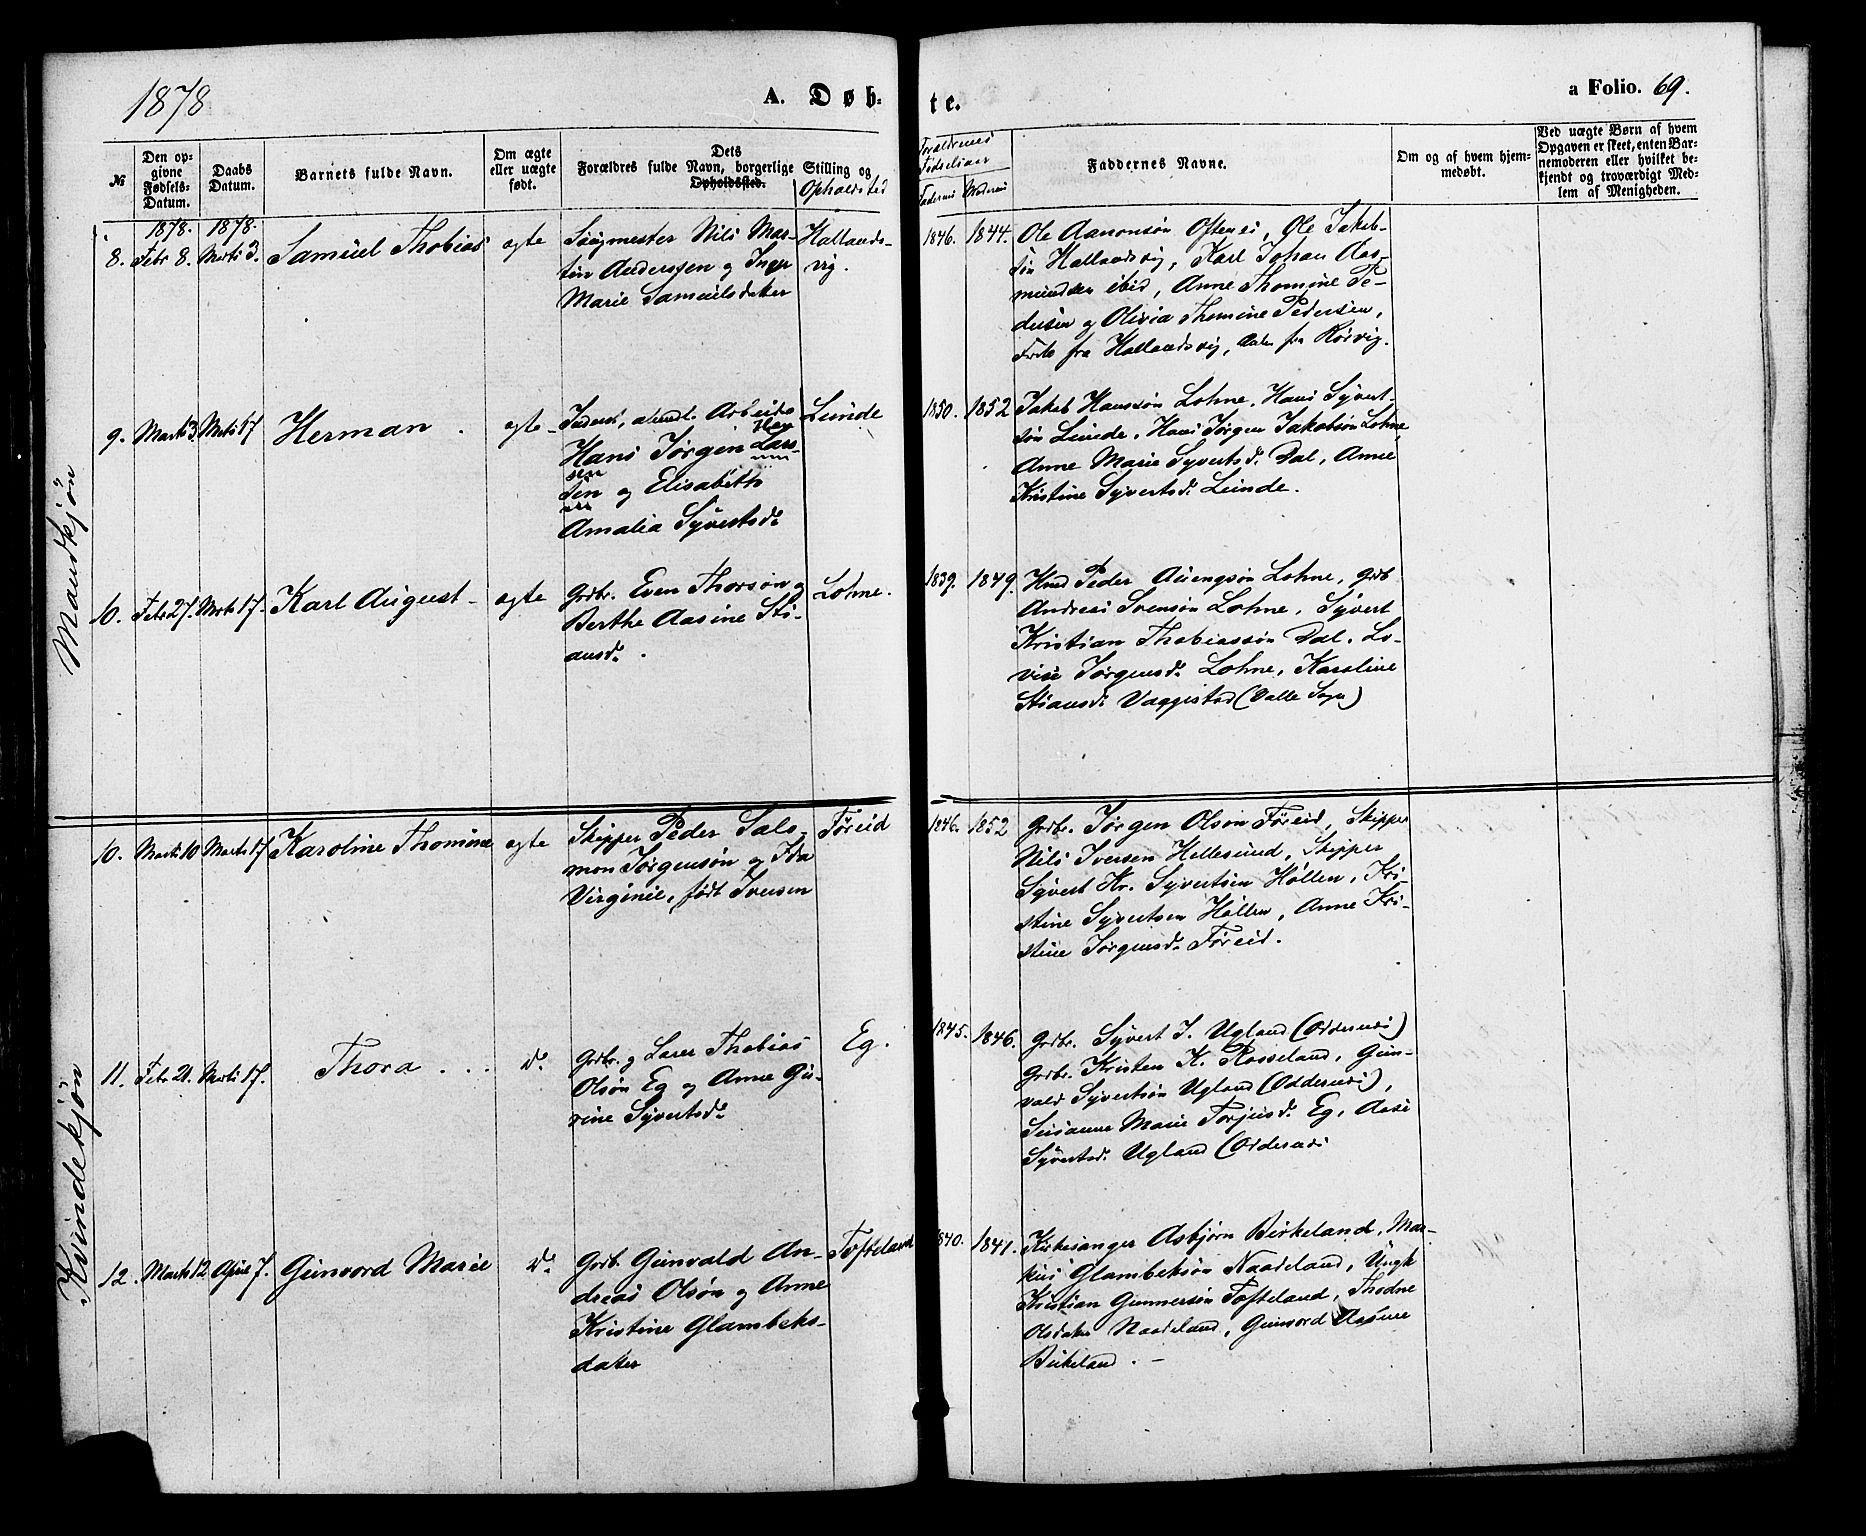 1878
A. Døb-
te.
a Folio. 69.
№
Den op-
givne
Fødsels-
Datum.
Daabs
Datum.
Barnets fulde Navn.
Om ægte
eller uægte
født.
Dets
Forældres fulde Navn, borgerlige Stilling og
Opholdssted.
Opholdsted
Forældrenes
Fødselsaar
Faderens Moderens
Faddernes Navne.
Om og af hvem hjem-
medøbt.
Ved uægte Børn af hvem
Opgaven er skeet, enten Bar-
nemoderen eller hvilket be-
kjendt og troværdigt Med-
lem af Menigheden.
Mandkjøn
1878. 1878.
8. Febr 8. Marts 3. Samuel Thobias ægte
Nils Mar-
tin Anderssen og Inger
Marie Samuelsdatter
Hallands-
vig.
1846. 1844.
Ole Aanonsøn Oftenes, Ole Jakob-
søn Hallandsvig, Karl Johan Aas-
mundsen ibid, Anne Thomine Pe-
dersen og Olivia Thomine Pedersen,
fra Hallandsvig, fra Rörvig.
9. Marts 3. Marts 17 Herman. ægte
Arbeids
Hans Jørgen Lars-
sen
søn og Elisabeth
Amalia Syvertsd.
Lunde
1850. 1852
Jakob Hanssøn Lohne, Hans Syvert-
søn Lunde, Hans Jørgen Jakobsøn Lohne,
Anne Marie Syvertsd. Dal, Anne
Kristine Syvertsd. Lunde.
10. Febr 27. Marts 17. Karl August ægte
Grdbr. Even Thorsøn og
Berthe Aasine Sti-
ansd.
Lohne.
1839. 1849.
Knud Peder Auengsøn Lohne, Grdb
Andreas Svensøn Lohne, Syvert
Kristian Thobiassøn Dal, Lo-
vise Jørgensd. Lohne, Karoline
Stiansd. Vaggestad (Valle Sogn)
Kvindekjøn
10. Marts 10 Marts 17 Karoline Thomine ægte
Skipper Peder Salo-
mon Jørgensøn og Ida
Virginie, født Iversen
Føreid
1846. 1852
Grdbr. Jørgen Olsøn Føreid, Skipper
Nils Iversen Hellesund, Skipper
Syvert Kr. Syvertsen Höllen, Kri-
stine Syvertsen Höllen, Anne Kri-
stine Jørgensd. Føreid.
11. Febr 21. Marts 17. Thora ... do.
Grdbr. og Thobias
Olsøn Eg og Anne Gu-
rine Syvertsd.
Eg.
1845. 1846.
Grdbr. Syvert J. Ugland (Oddernes)
Grdbr. Kristen K. Rosseland, Gun-
vald Syvertsøn Ugland (Oddernes),
Susanne Marie Torjusd. Eg, Aase
Syvertsd. Ugland (Oddernes
12. Marts 12 April 7. Gunvord Marie do.
Grdb. Gunvald An-
dreas Olsøn og Anne
Kristine Glambeks-
datter
Tofteland
1840. 1841.
Kirkesanger Asbjørn Birkeland, Mar-
kus Glambeksøn Naadeland, Ungk
Kristian Gunnersøn Tofteland, Thodne
Olsdatter Naadeland, Gunvord Aasne
Birkeland. –